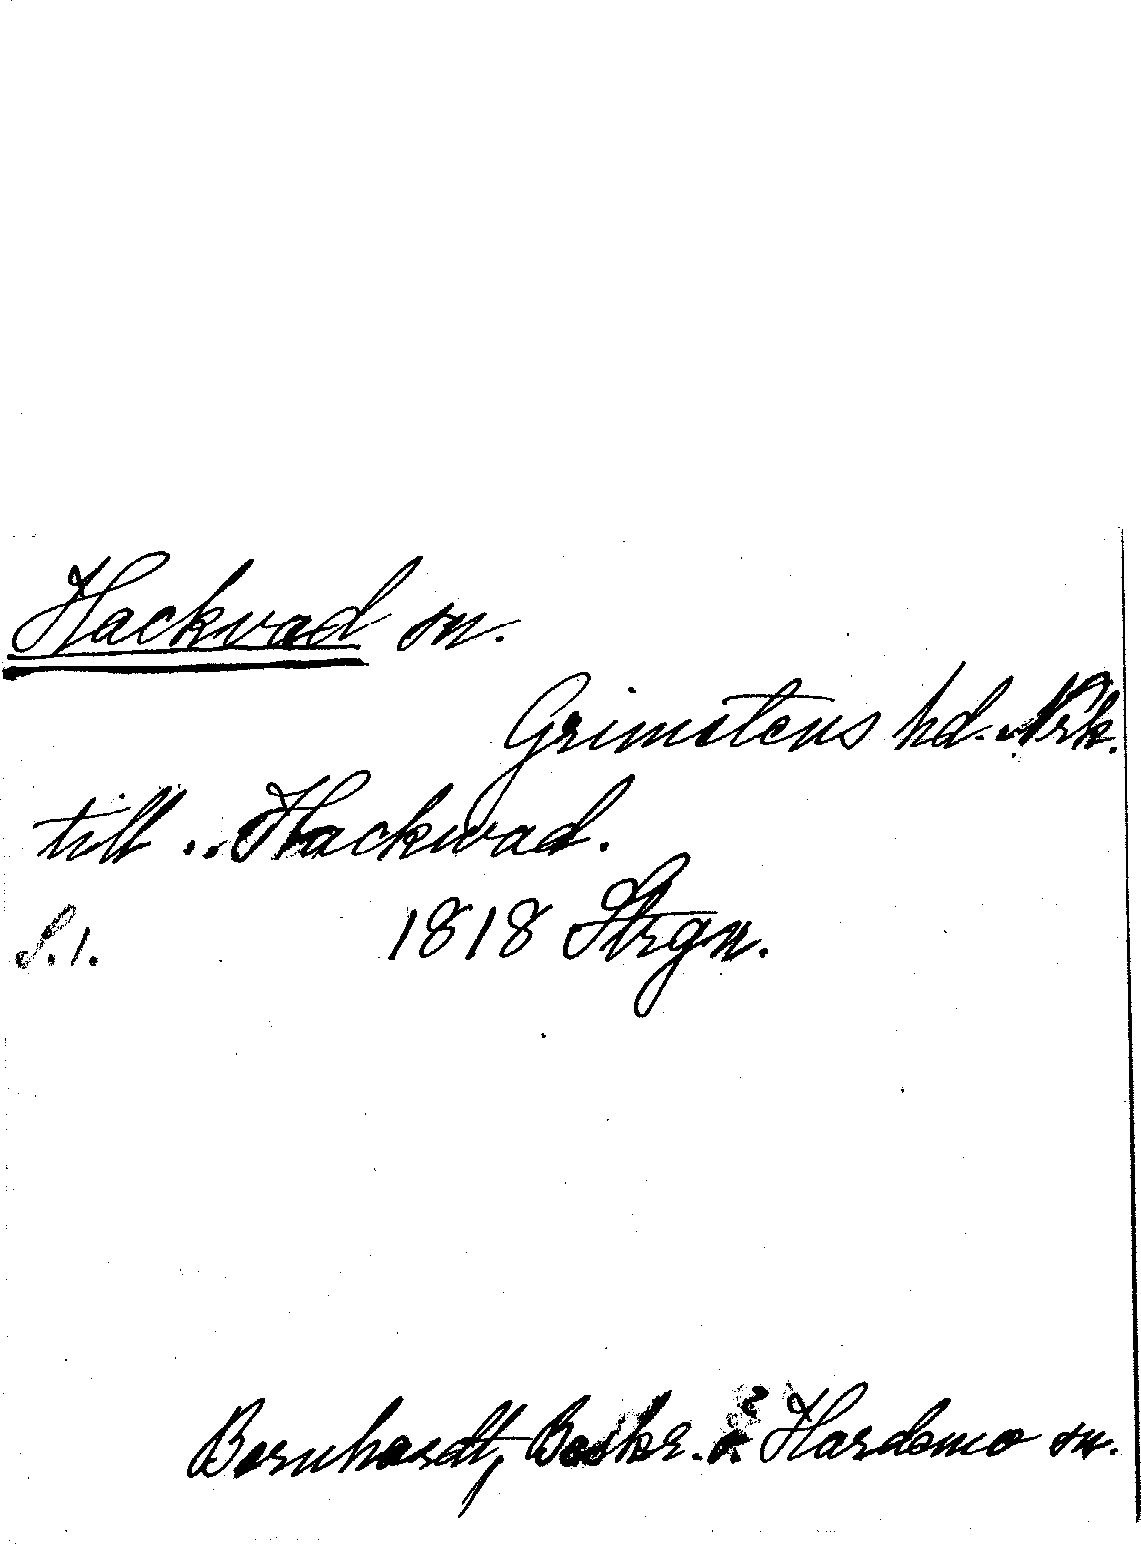 Hackvad sn.
Grimstens hd. Nrk.
till .. Hackwad.
S. 1. 1818 Strgn.
Bernhardt, Beskr. ö. Hardemo sn.